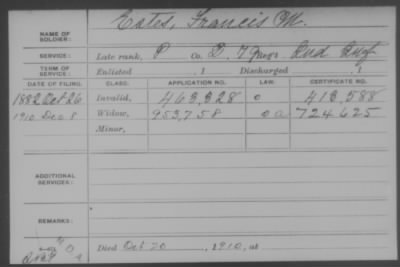 NAME OF SOLDIER: Eates, Francis M.
SERVICE: Late rank, P Co. D, 7 Ind Inf
TERM OF SERVICE: Enlisted , 1 Discharged , 1
DATE OF FILING. CLASS. APPLICATION NO. LAW. CERTIFICATE NO.
1882 Oct 26 Invalid, 463,328 o 413,588
1910 Dec 8 Widow, 953,758 oa 724625
Minor,
ADDITIONAL SERVICES:
REMARKS:
Died Oct 20, 1910, at